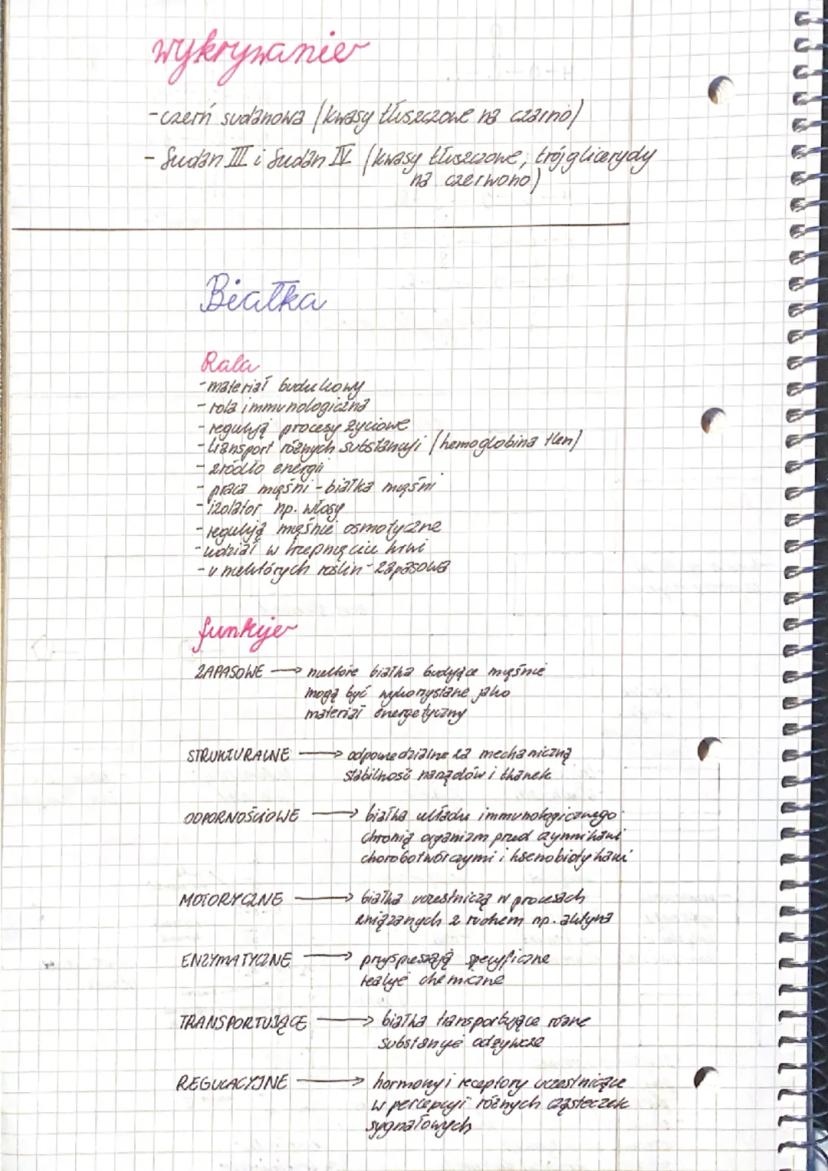 wykrywanie
- czerń sudanowa (kwasy tłuszczowe na czarno)
- Sudan III i Sudan IV (kwasy tłuszczowe, trójglicerydy
na czerwono)
Białka
Rola
- materiał budulcowy
- rola immunologiczna
- regulują procesy życiowe
- transport różnych substancji (hemoglobina tlen)
- źródło energii
- praca mięśni - białka mięśni
- izolator np. włosy
- regulują mięśnie osmotyczne
- udział w krzepnięciu krwi
- u niektórych roślin - zapasowa
funkcje
ZAPASOWE → niektóre białka budujące mięśnie
mogą być wykorzystane jako
materiał energetyczny
STRUKTURALNE → odpowiedzialne za mechaniczną
stabilność narządów i tkanek
ODPORNOŚCIOWE → białka układu immunologicznego
chronią organizm przed czynnikami
chorobotwórczymi i ksenobiotykami
MOTORYCZNE → białka uczestniczą w procesach
związanych z ruchem np. aktyna
ENZYMATYCZNE → przyspieszają specyficzne
reakcje chemiczne
TRANSPORTUJĄCE → białka transportujące różne
substancje odżywcze
REGULACYJNE → hormony i receptory uczestniczące
w percepcji różnych cząsteczek
sygnałowych